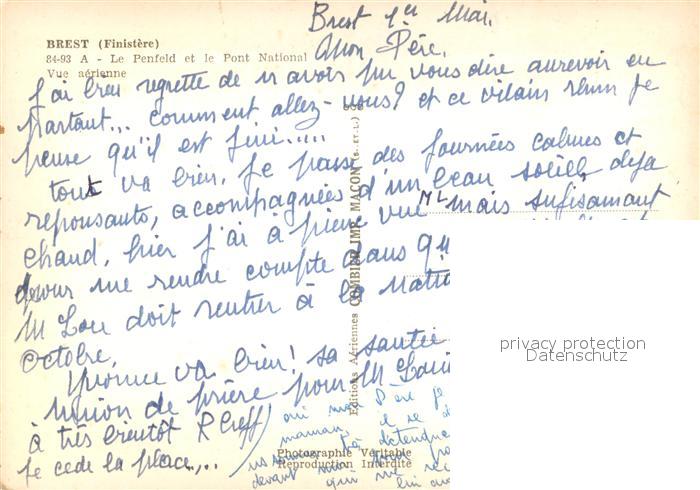 Brest 1er Mai.
Mon Père,
BREST (Finistère)
84-93 A - Le Penfeld et le Pont National
Vue aérienne
J'ai bien regretté de n'avoir pu vous dire aurevoir en
partant... comment allez-vous? et ce vilain rhum je
pense qu'il est fini.....
tout va bien, je passe des journées calmes et
reposants, accompagnées d'un beau soleil, deja
chaud, hier j'ai à peine vue ML mais sufisamant
pour me rendre compte dans
M Lou doit rentrer à la
Octobre.
va bien! sa santée
union de prière pour M
à très bientôt R Creff
je cède la place....
oui mon Père
maman,
devant
qui me
Editions Aériennes COMBIER IMP. MACON (S.-ET-L.)
Photographie Véritable
Reproduction Interdite
privacy protection
Datenschutz